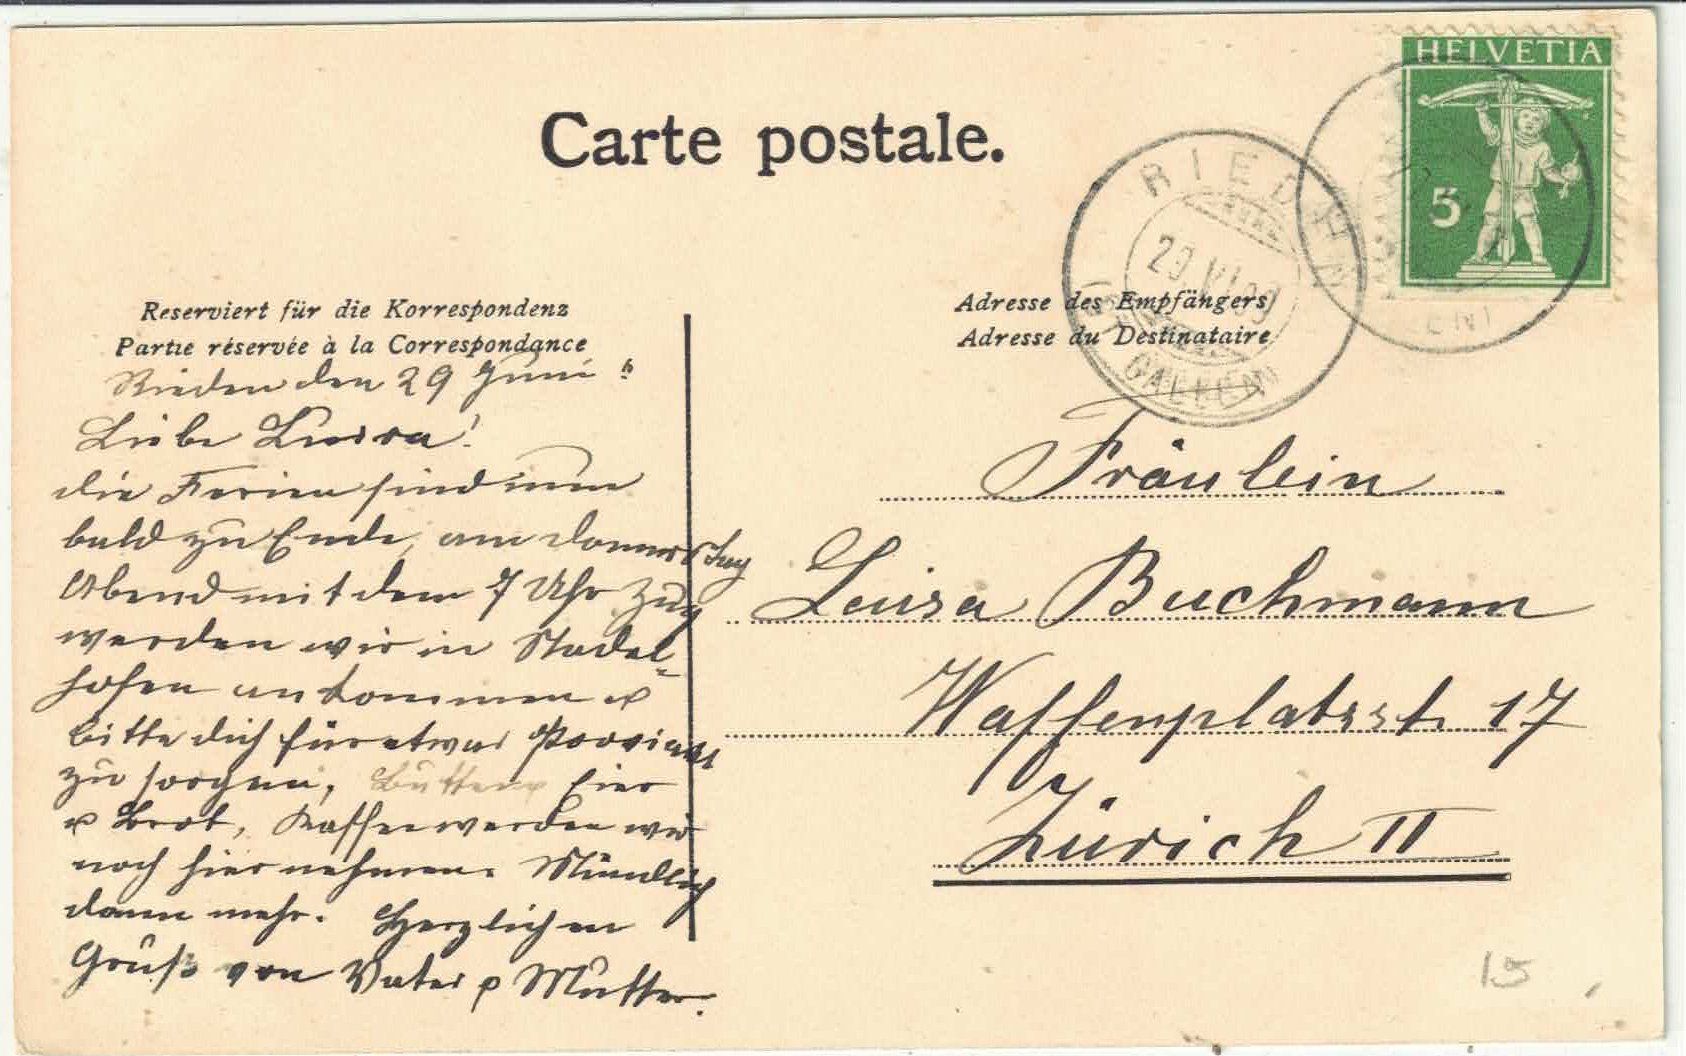 HELVETIA
5
Carte postale.
RIEDEN
29.VI.09
GALLEN
Reserviert für die Korrespondenz
Partie réservée à la Correspondance
Adresse des Empfängers
Adresse du Destinataire
Rieden den 29 Juni
Liebe Luisa!
die Ferien sind nun
bald zu Ende, am Donnerstag
Abend mit dem 7 Uhr Zug
werden wir in Stadel-
hofen ankommen u
bitte dich für etwas Proviant
zu sorgen, Butter Eier
u Brot, Kaffee werden wir
noch hier nehmen. Mündlich
dann mehr. Herzlichen
Gruß von Vater u Mutter.
Fräulein
Luisa Buchmann
Waffenplatzstr 17
Zürich II
15